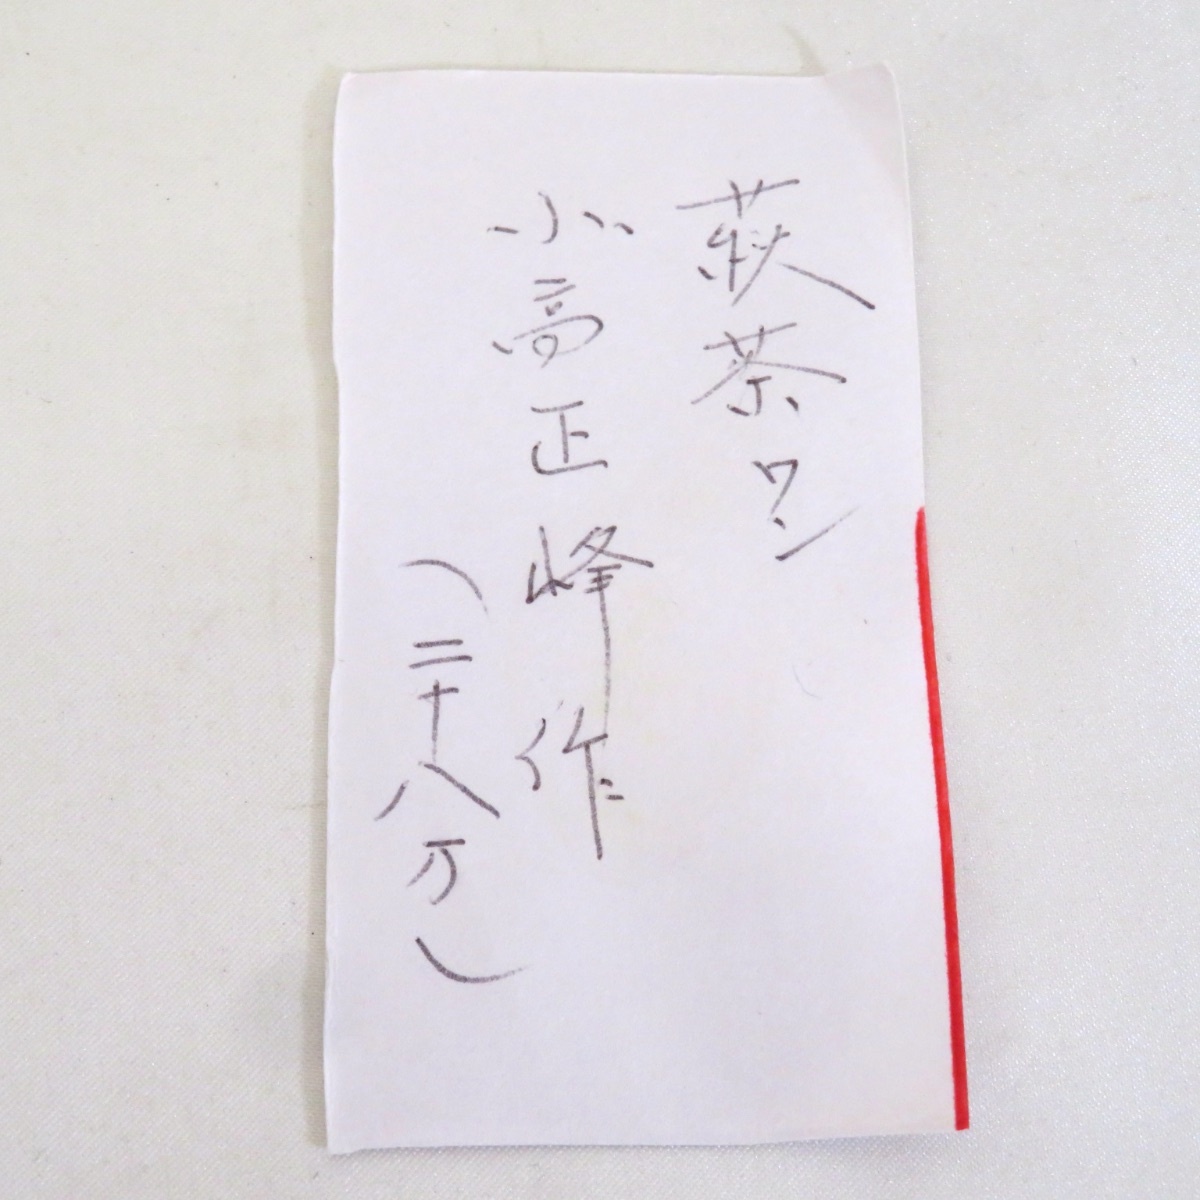 萩茶ワン
小高正峰作
（二十八万）